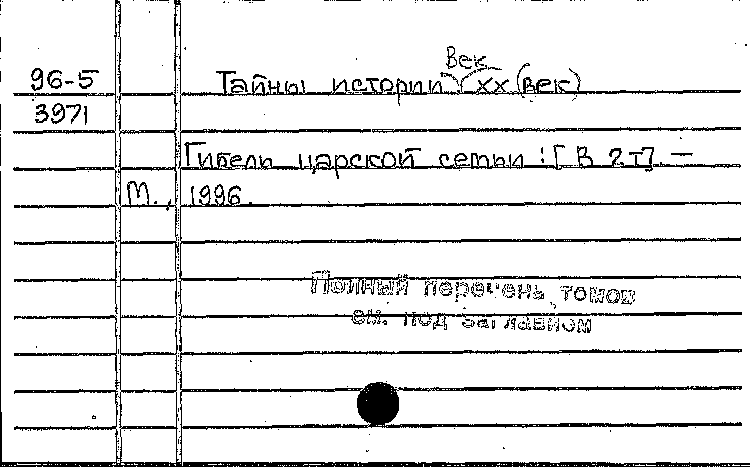 Век
96-5 Тайны истории xx (век)
3971
Гибель царской семьи : [ В 2т]. —
М., 1996.
Полный перечень томов
см. под заглавием